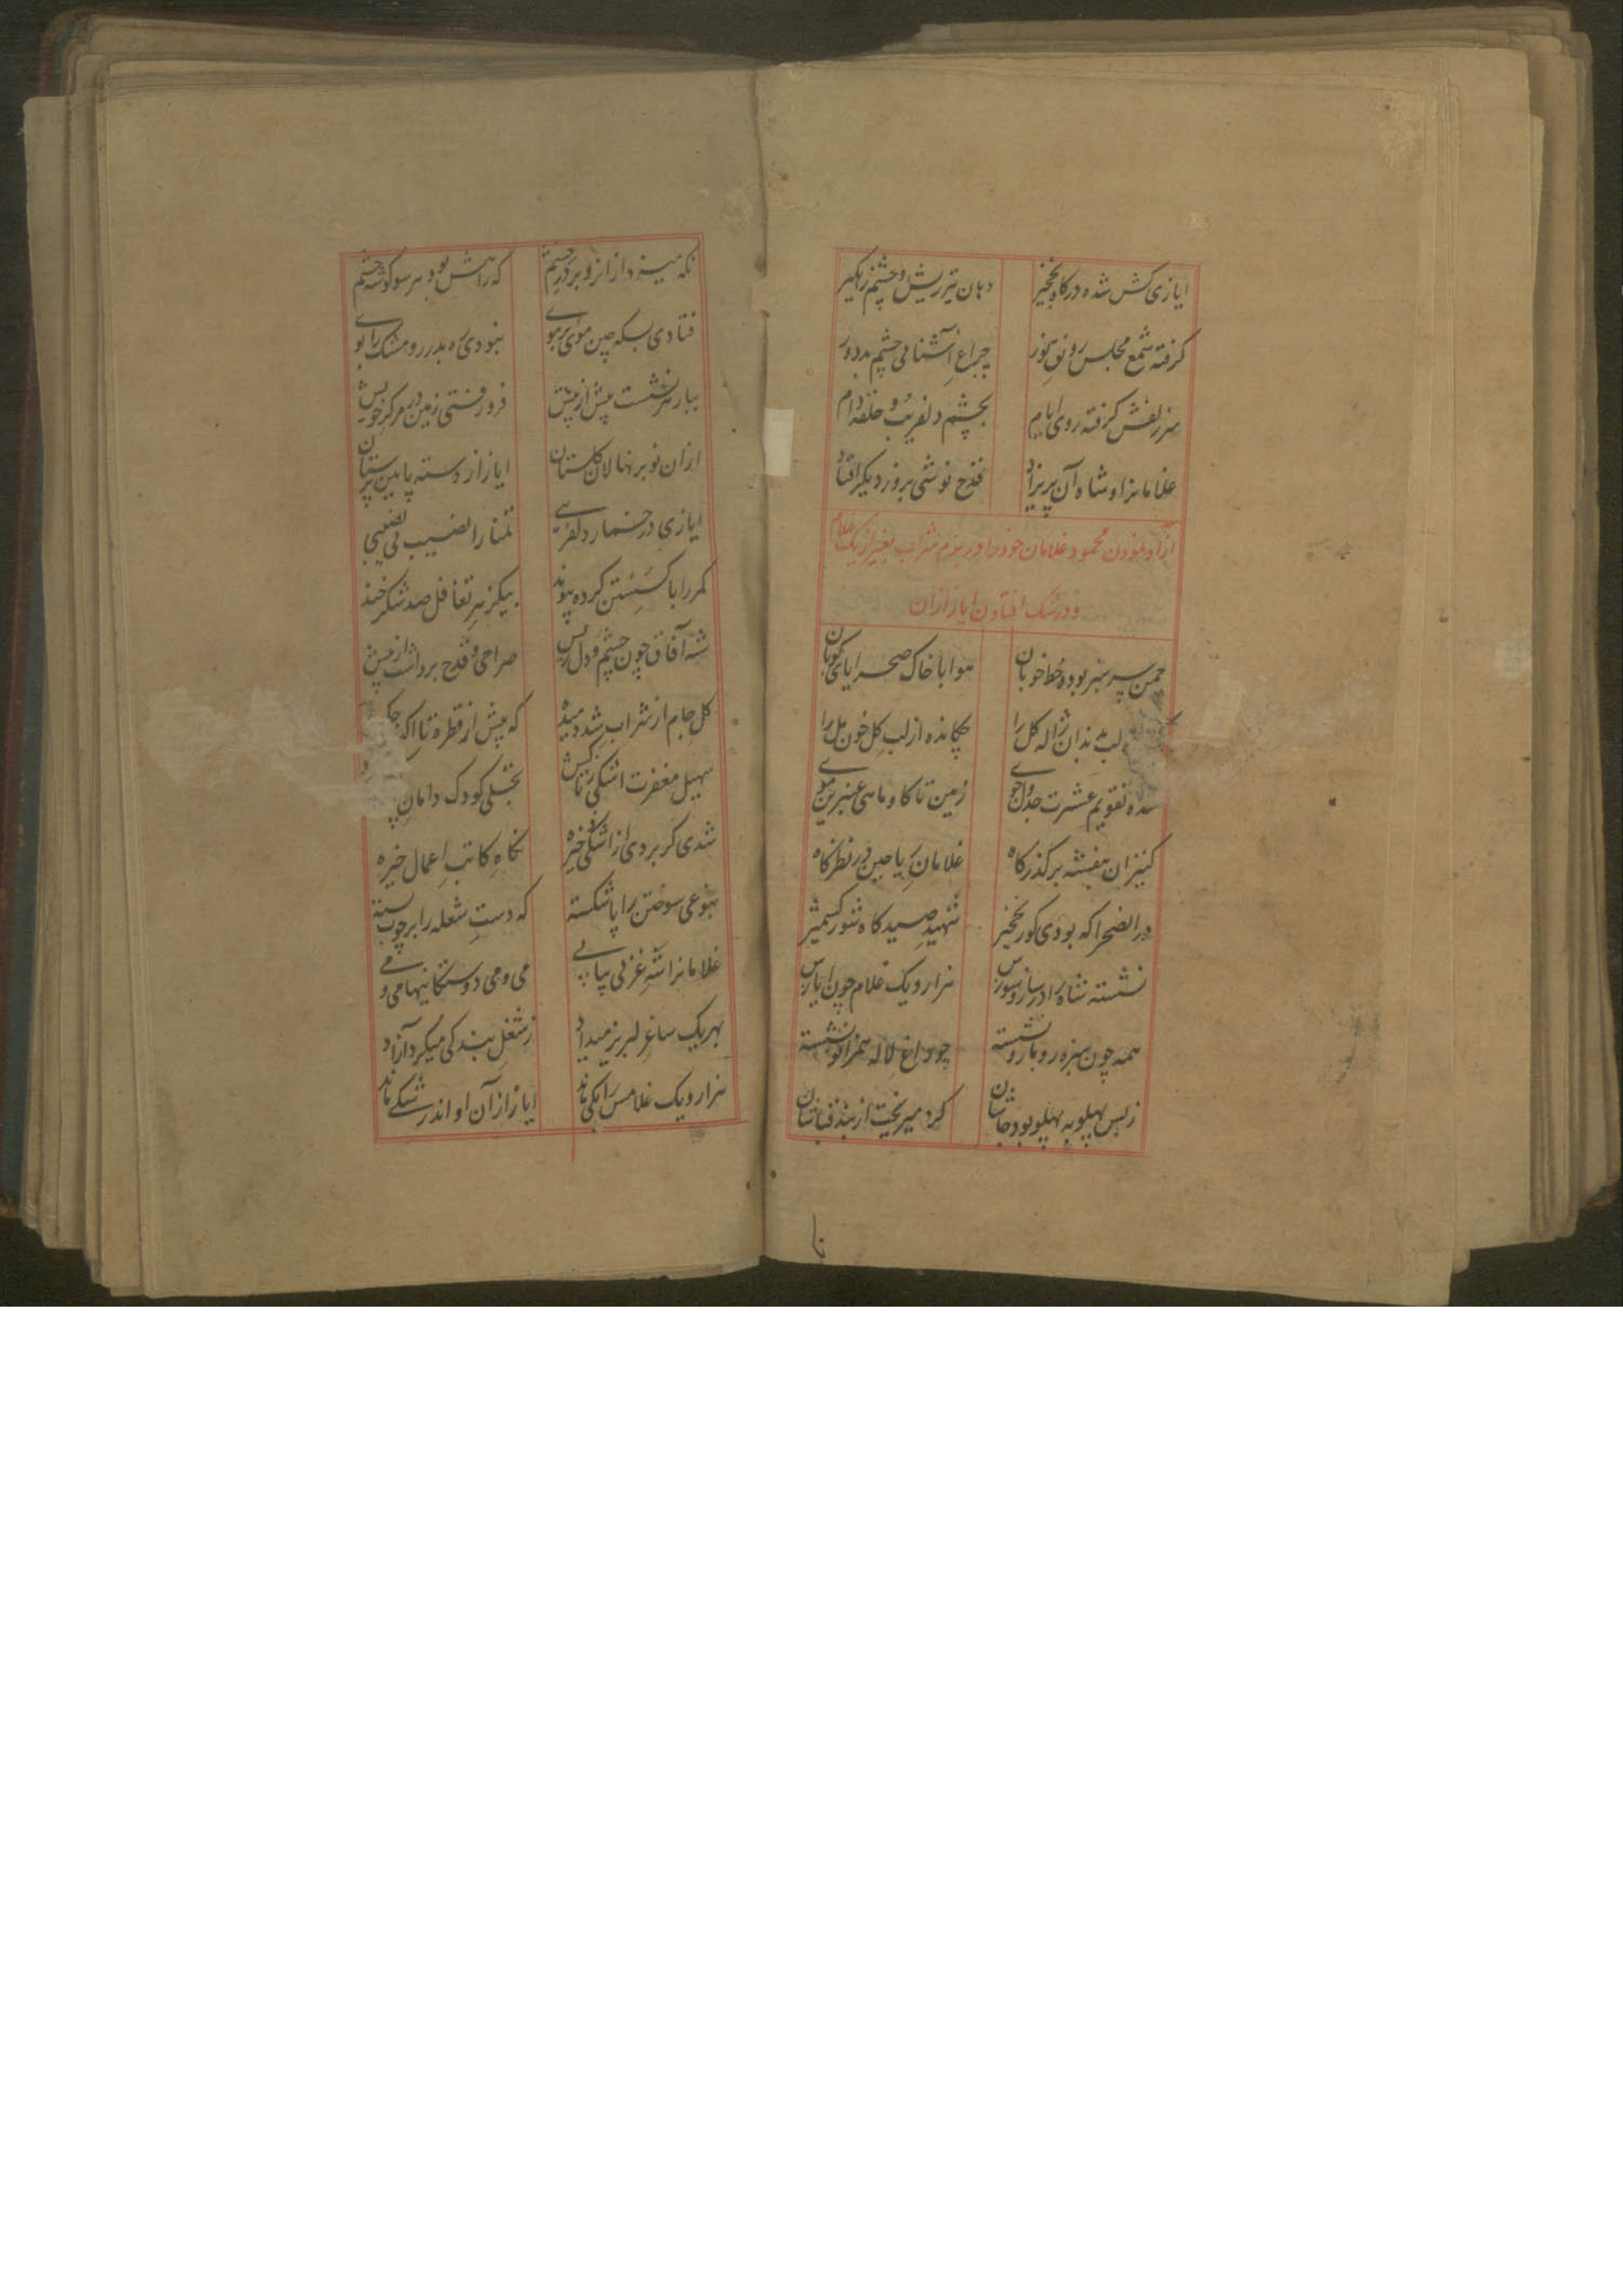 ایازی کش شده درکاه نخجیر دهان تیرریش و چشم زهکیر
کرفته شمع مجلس رونق نور چراغ آشنائی چشم بد دور
سرزلفش کرفته روی ایام بچشم دلفریب و حلقه دام
غلامانرا و شاه آن پریزاد قدح نوشی بروز دیکر افتاد
آزاد نمودن محمود غلامان خود را در بزم شراب بغیر از یک غلام
و در شک افتادن ایاز ازان
چمن سرسبز بوده خط خوبان هوا با خاک صحرا پای کوبان
لب بدندان ژاله کل را چکانده از لب کل خون مل را
شده تقویم عشرت جدول جوی زمین تا کاو ماهی عنبرین موی
کنیزان بنفشه بر کذرکاه غلامان ریاحین در نظرکاه
در انصحرا که بودی کور نخجیر شهید صیدکاه شور کشمیر
نشسته شاه را در ساز و سورس هزار و یک غلام چون ایازس
همه چون سبزه رو با رو نشسته چو داغ لاله همزانو نشسته
زبس پهلو به پهلو بود جاشان کره میریخت از بند قباشان
نکه میزد از انرو بر در چشم که راهش بود بر سو کوشه چشم
فتادی بسکه چین موی بر موی نبودی ره بدر رو مشک را بوی
ببار سرنشست پیش از پیش فرو رفتی زمین در مرکز خویش
ازان نوبر نهالان کلستان ایاز از دسته پایین پرستان
ایازی در خمار دلفریبی تمنا را نصیب بی نصیبی
کمر را با کسستن کرده پیوند بیکزهر تغافل صد شکرخند
شه آفاق چون چشم و دل ریش صراحی و قدح برداشت از پیش
کل جام از شراب شد دمیده که پیش از قطره تا
سهیل مغفرت اشکی ز تاکش تجلی کودک دامان
شدی کر بردی از اشکی خیره نکاه کاتب اعمال خیره
بنوعی سوختن را پا شکسته که دست شعله را بر چوب بسته
غلامانرا شه غزنی پیاپی می و می دوستکانیها می و می
بهریک ساغر لبریز میداد ز شغل بندکی میکرد آزاد
هزار و یک غلامس را یکی ماند ایاز از آن او اندر شکی ماند